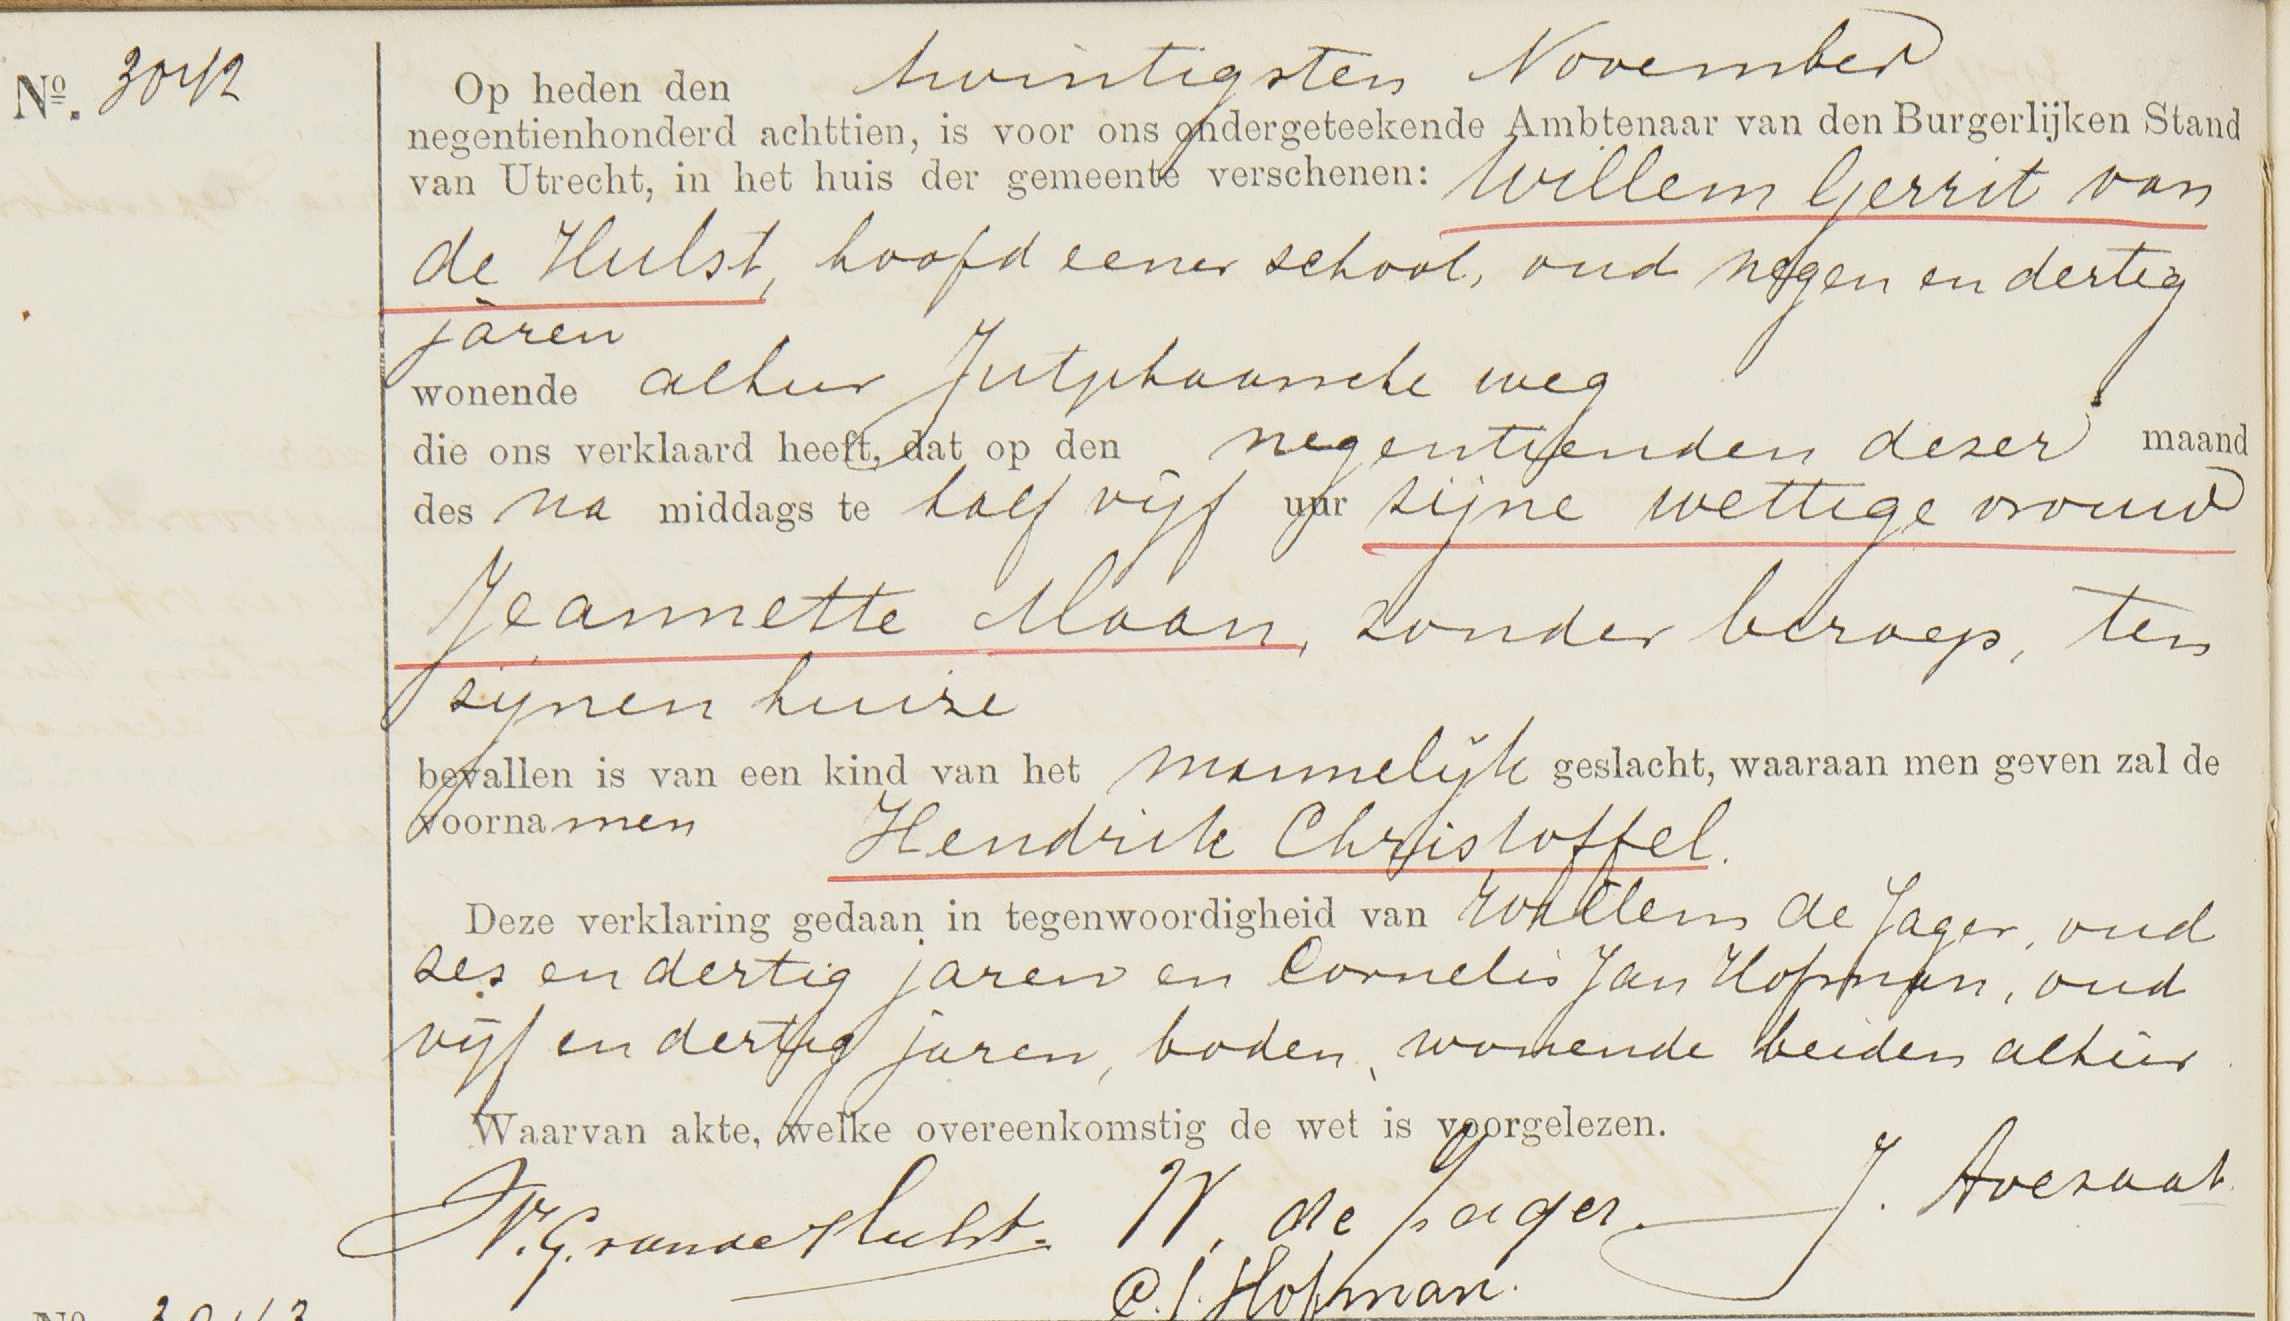 Nº. 3042
Op heden den twintigsten November
negentienhonderd achttien, is voor ons ondergeteekende Ambtenaar van den Burgerlijken Stand
van Utrecht, in het huis der gemeente verschenen: Willem Gerrit van
de Hulst, hoofd eener school, oud negen en dertig
jaren
wonende alhier Jutphaansche weg
die ons verklaard heeft, dat op den negentienden dezer maand
des na middags te half vijf uur zijne wettige vrouw
Jeannette Maan, zonder beroep, ten
zijnen huize
bevallen is van een kind van het mannelijk geslacht, waaraan men geven zal de
voornamen Hendrik Christoffel.
Deze verklaring gedaan in tegenwoordigheid van Willem de Jager, oud
zes en dertig jaren en Cornelis Jan Hofman, oud
vijf en dertig jaren, boden, wonende beiden alhier.
Waarvan akte, welke overeenkomstig de wet is voorgelezen.
W.G. van de Hulst. W. de Jager. J. Avezaat.
C.J. Hofman.
Nº 3043